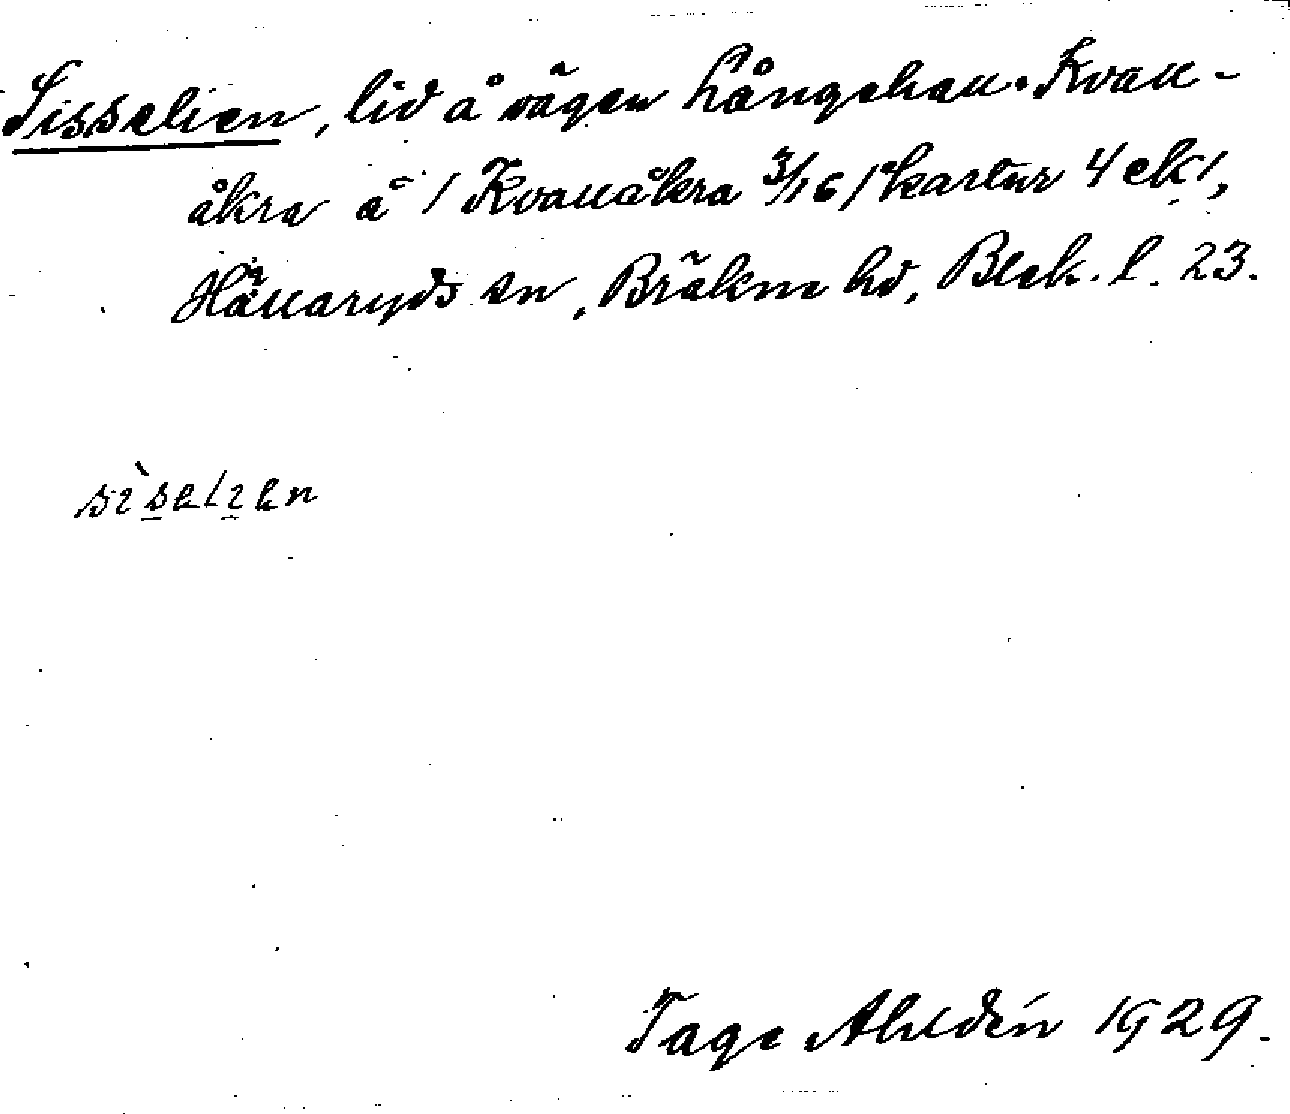 Sisselien, lid å vägen Långehall-Kvall-
åkra å / Kvallåkra 3/16 / kartur 4 ek/,
Hällaryds sn, Bräkne hd, Blek. l. 23.
sìselien
Tage Ahldén 1929.